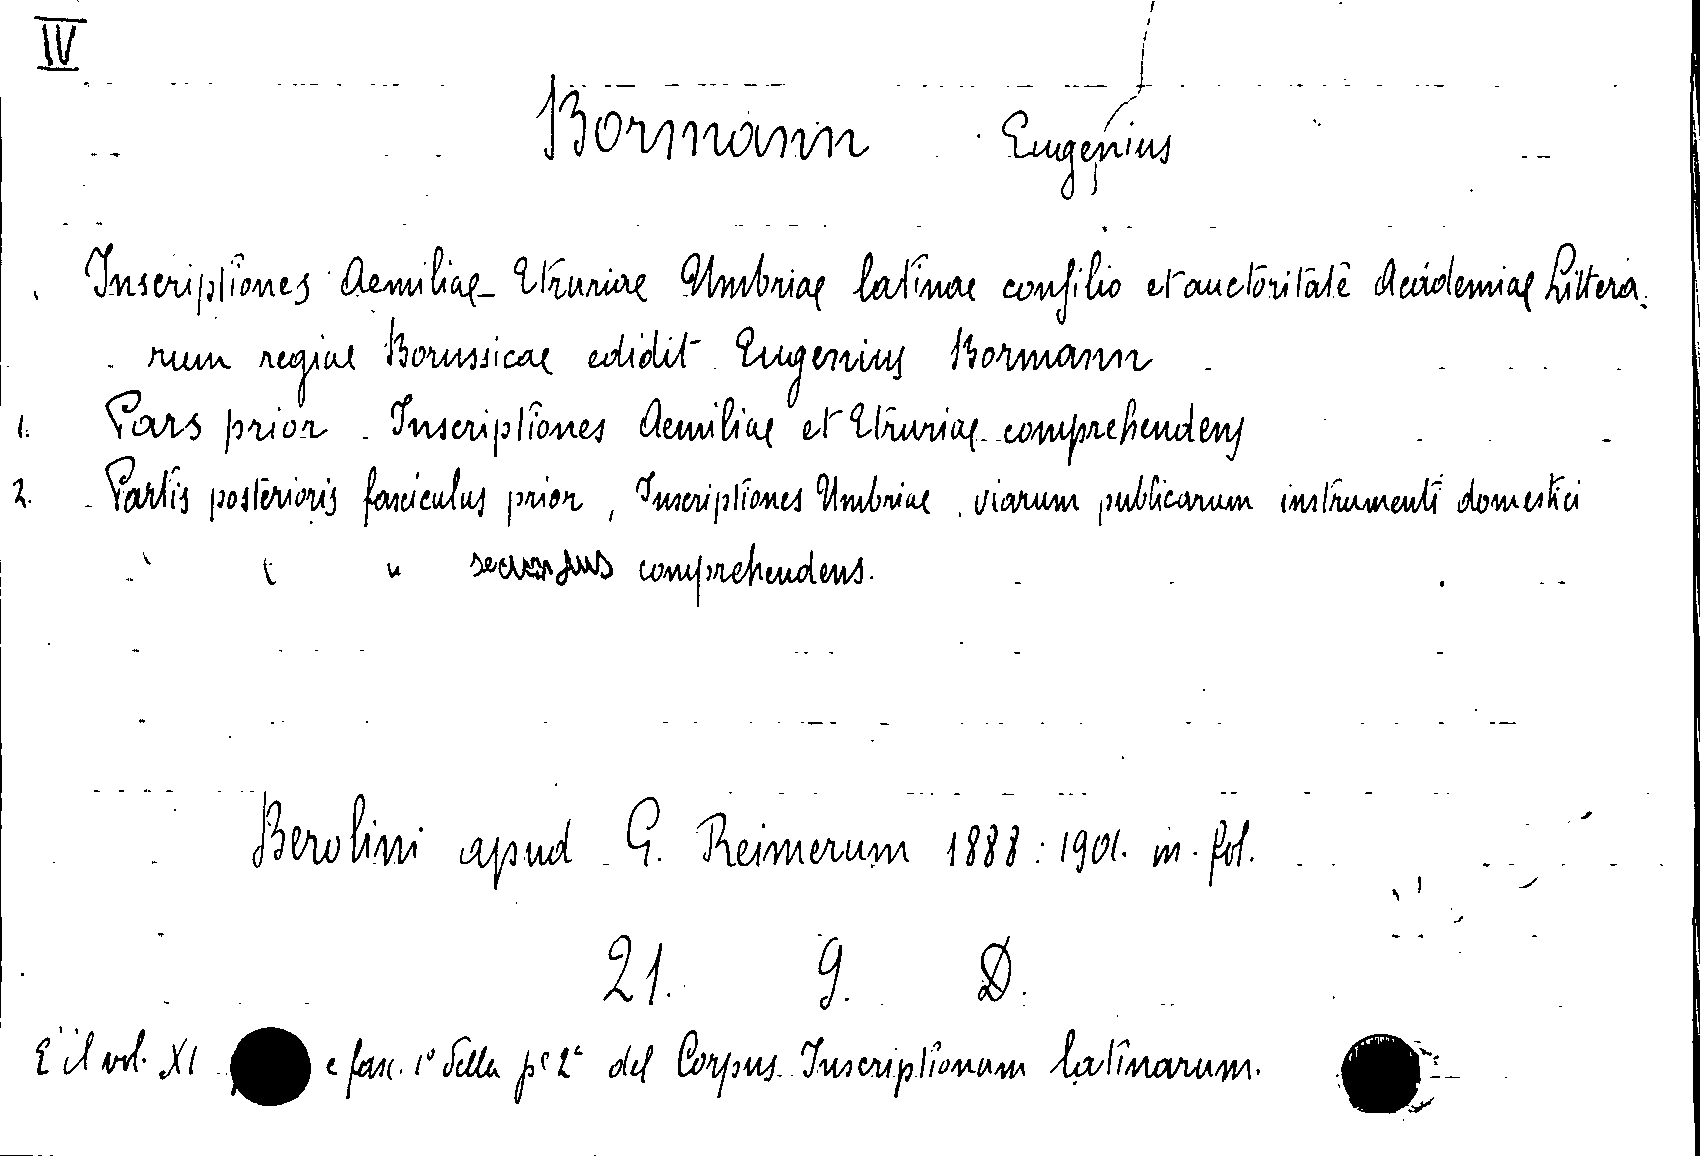 IV
Bormann Eugenius
Inscriptiones Aemiliae Etruriae Umbriae latinae consilio et auctoritate Academiae Littera-
rum regiae Borussicae edidit Eugenius Bormann
1. Pars prior Inscriptiones Aemiliae et Etruriae comprehendens
2. Partis posterioris fasciculus prior, Inscriptiones Umbriae, viarum publicarum instrumenti domestici
" " " secundus comprehendens.
Berolini apud G. Reimerum 1888 : 1901. in-fol.
21. 9. D.
E' il vol. XI e fasc. 1° della pe 2a del Corpus Inscriptionum latinarum.